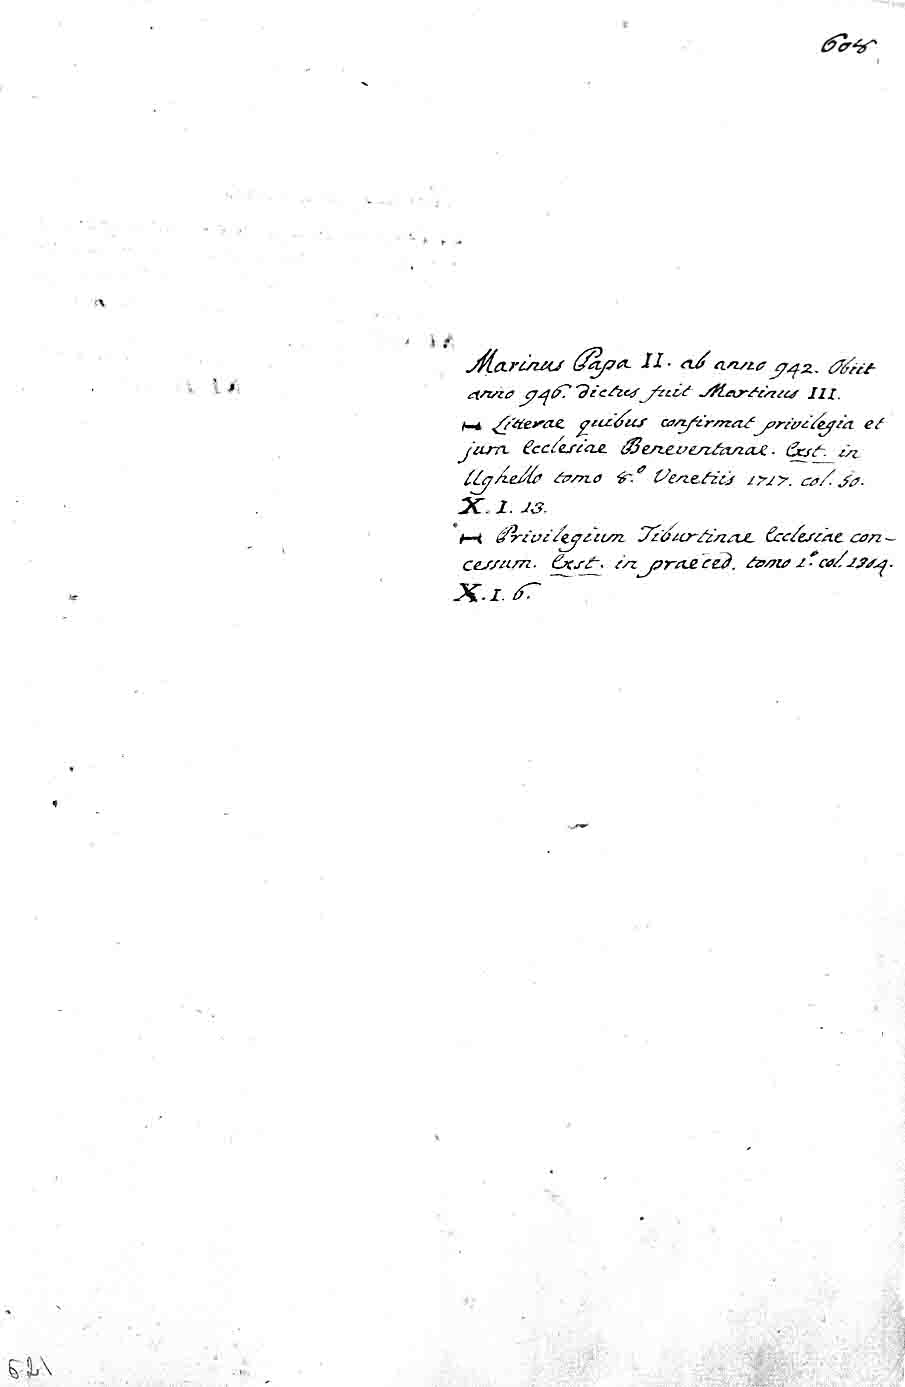 608
Marinus Papa II. ab anno 942. Obiit
anno 946. dictus fuit Martinus III.
⊢⊣ Litterae quibus confirmat privilegia et
jura Ecclesiae Beneventanae. Exst. in
Ughello tomo 8.º Venetiis 1717. col. 50.
X. I. 13.
⊢⊣ Privilegium Tiburtinae Ecclesiae con-
cessum. Exst. in praeced. tomo 1.º col. 1304.
X. I. 6.
621